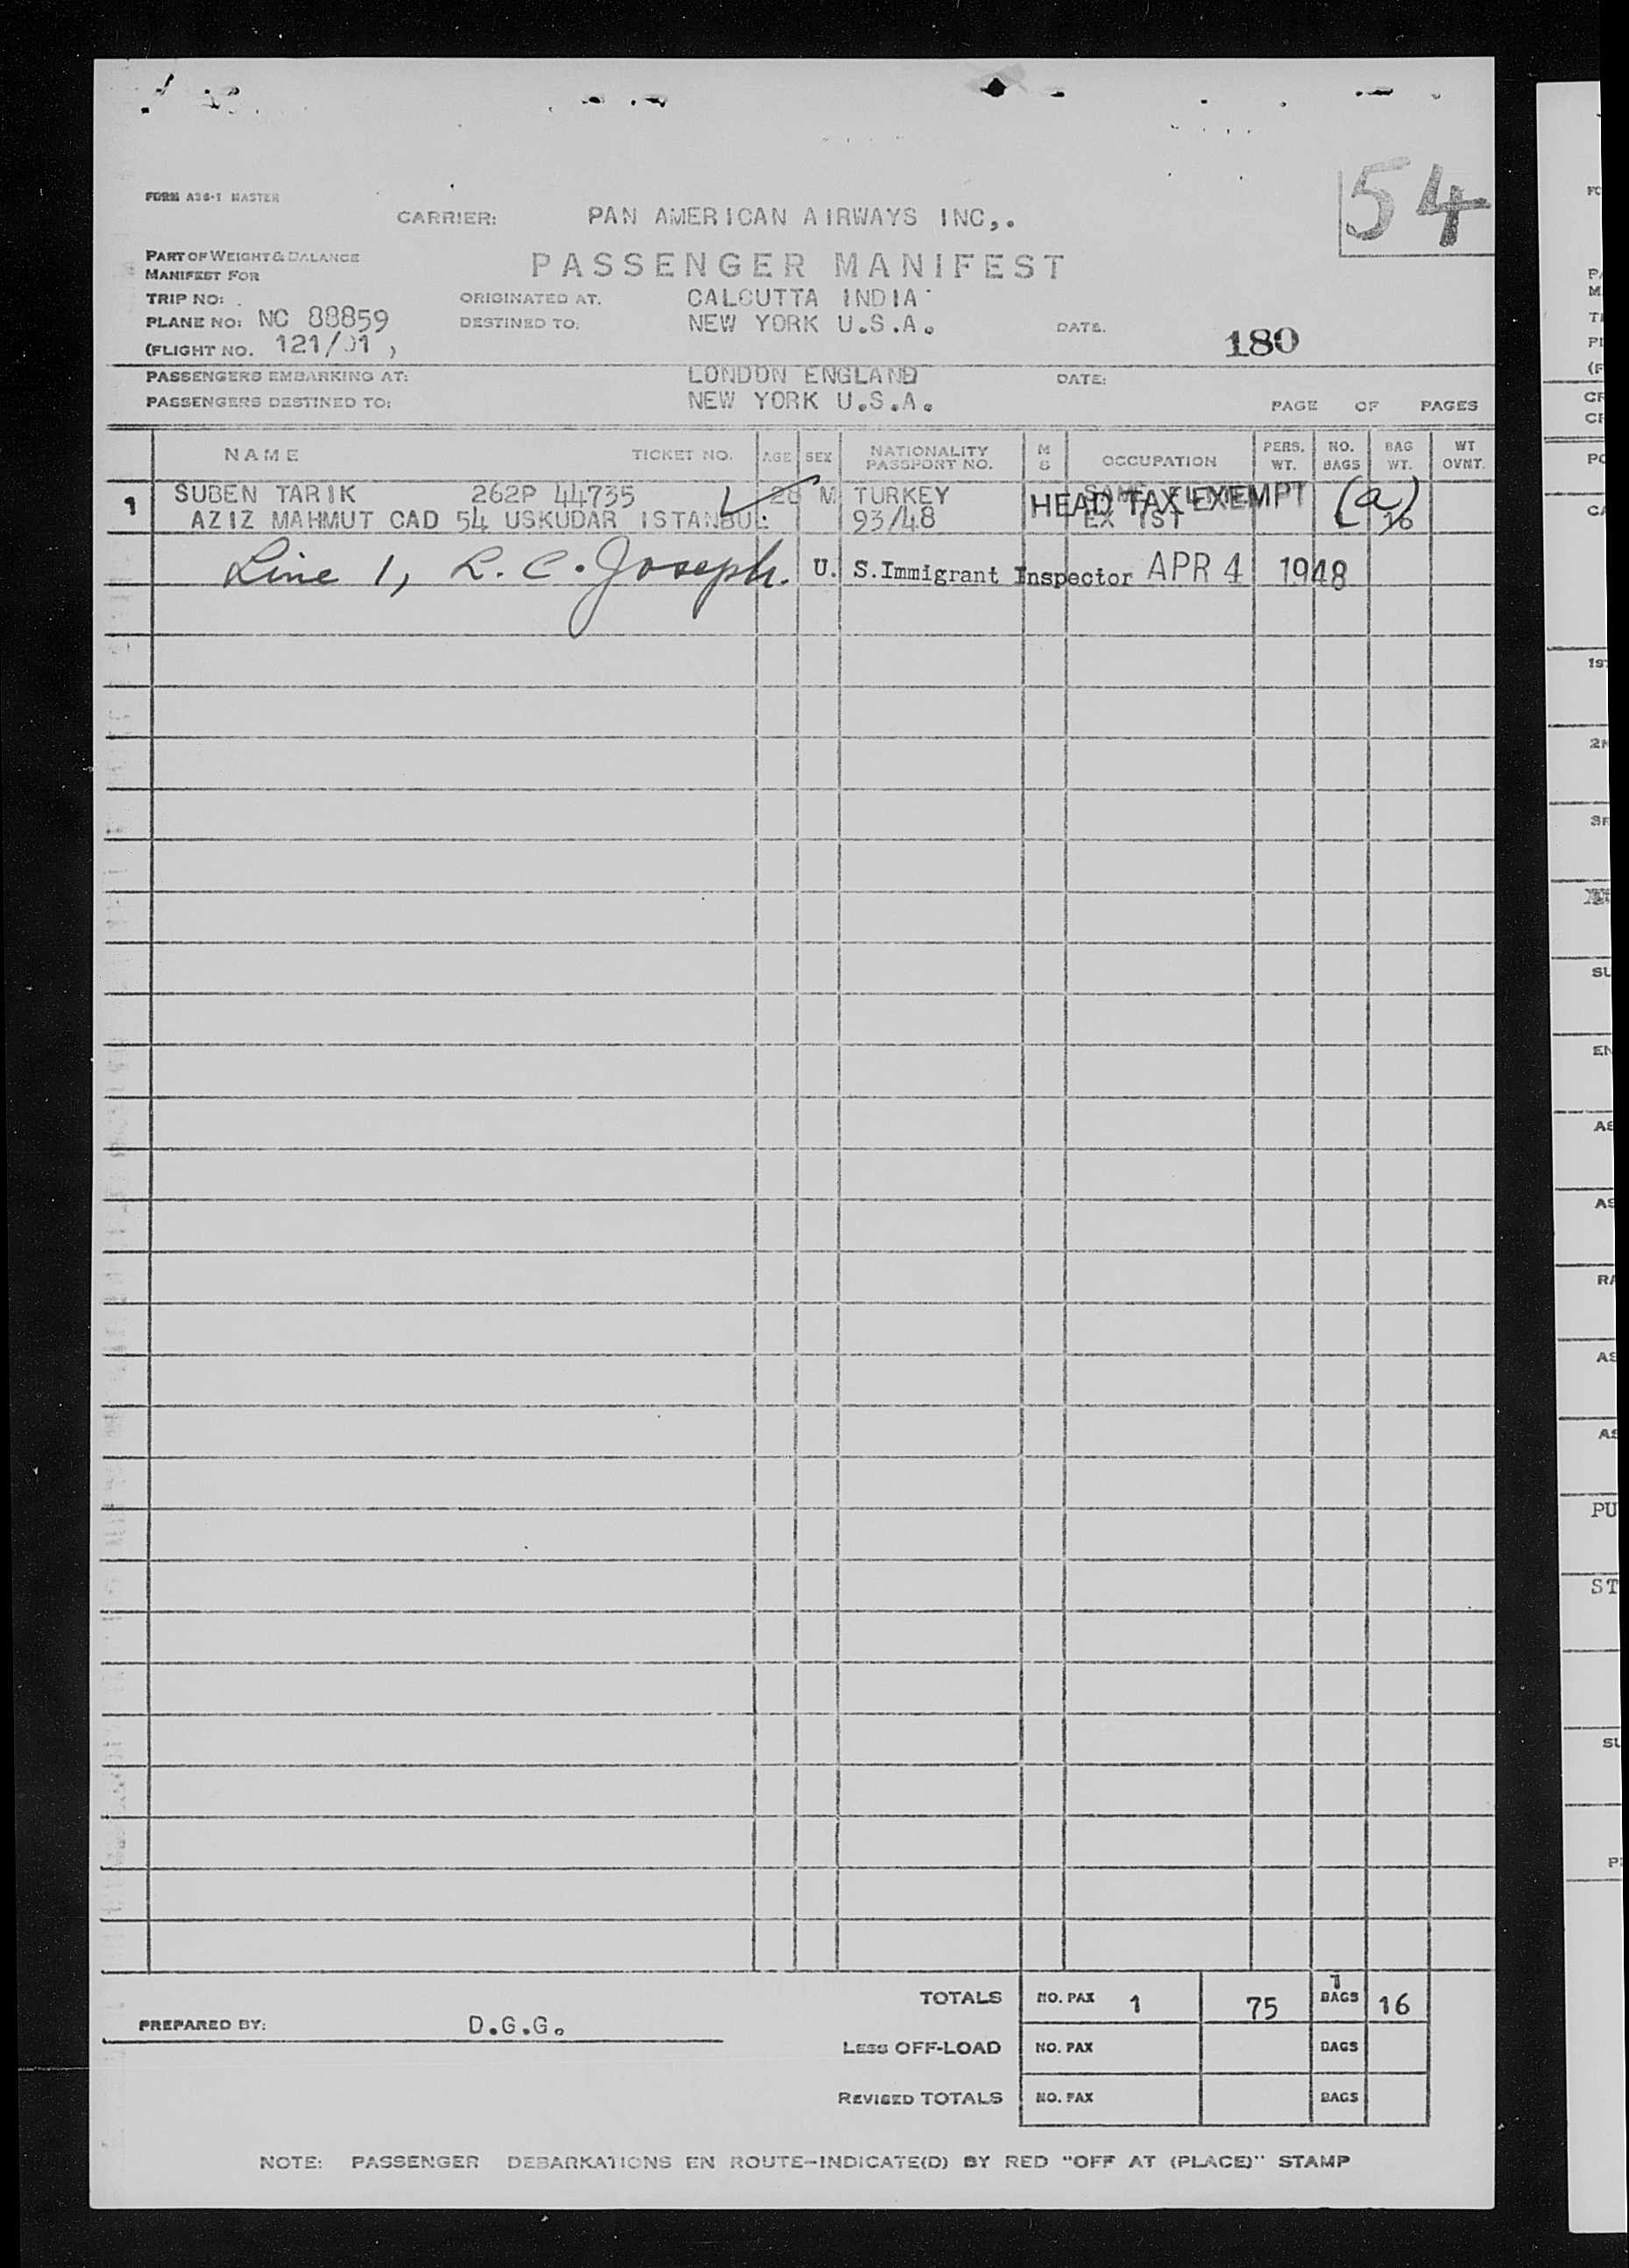 54
FORM A36-1 MASTER
CARRIER: PAN AMERICAN AIRWAYS INC,.
PART OF WEIGHT & BALANCE
MANIFEST FOR
PASSENGER MANIFEST
TRIP NO: ORIGINATED AT. CALCUTTA INDIA
PLANE NO: NC 88859 DESTINED TO: NEW YORK U.S.A. DATE.
180
(FLIGHT NO. 121/01 )
PASSENGERS EMBARKING AT: LONDON ENGLAND DATE:
PASSENGERS DESTINED TO: NEW YORK U.S.A. PAGE OF PAGES
NAME TICKET NO. AGE SEX NATIONALITY PASSPORT NO. M S OCCUPATION PERS. WT. NO. BAGS BAG WT. WT OVNT.
1 SUBEN TARIK 262P 44735 28 M TURKEY HEAD TAX EXEMPT (a)
AZIZ MAHMUT CAD 54 USKUDAR ISTANBUL 93/48 EX IST 16
Line 1, L. C. Joseph. U. S. Immigrant Inspector APR 4 1948
TOTALS NO. PAX 1 75 1 BAGS 16
PREPARED BY: D.G.G.
LESS OFF-LOAD NO. PAX BAGS
REVISED TOTALS NO. PAX BAGS
NOTE: PASSENGER DEBARKATIONS EN ROUTE-INDICATE(D) BY RED "OFF AT (PLACE)" STAMP